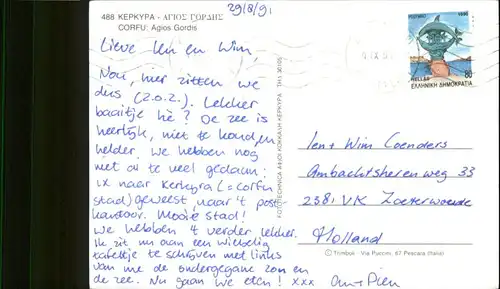 29/8/91
488 ΚΕΡΚΥΡΑ - ΑΓΙΟΣ ΓΟΡΔΗΣ
CORFU: Agios Gordis
Lieve Ien en Wim,
Nou, hier zitten we
dus (z.o.z.). Lekker
baaitje hè? De zee is
heerlijk, niet te koud, en
helder. We hebben nog
niet al te veel gedaan:
1x naar Kerkyra (= corfu
stad) geweest, naar 't post
kantoor. Mooie stad!
We hebben 't verder lekker.
Ik zit nu aan een wiebelig
tafeltje te schrijven met links
van me de ondergegane zon en
de zee. Nu gaan we eten! xxx Ann + Pien
ΚΕΡΚΥΡΑ ΤΗΛ. 30105
1990
HELLAS 80
ΕΛΛΗΝΙΚΗ ΔΗΜΟΚΡΑΤΙΑ
Ien + Wim Coenders
Ambachtsherenweg 33
2381 VK Zoeterwoude
Holland
© Trimboli Via Puccini, 67 Pescara (Italia)